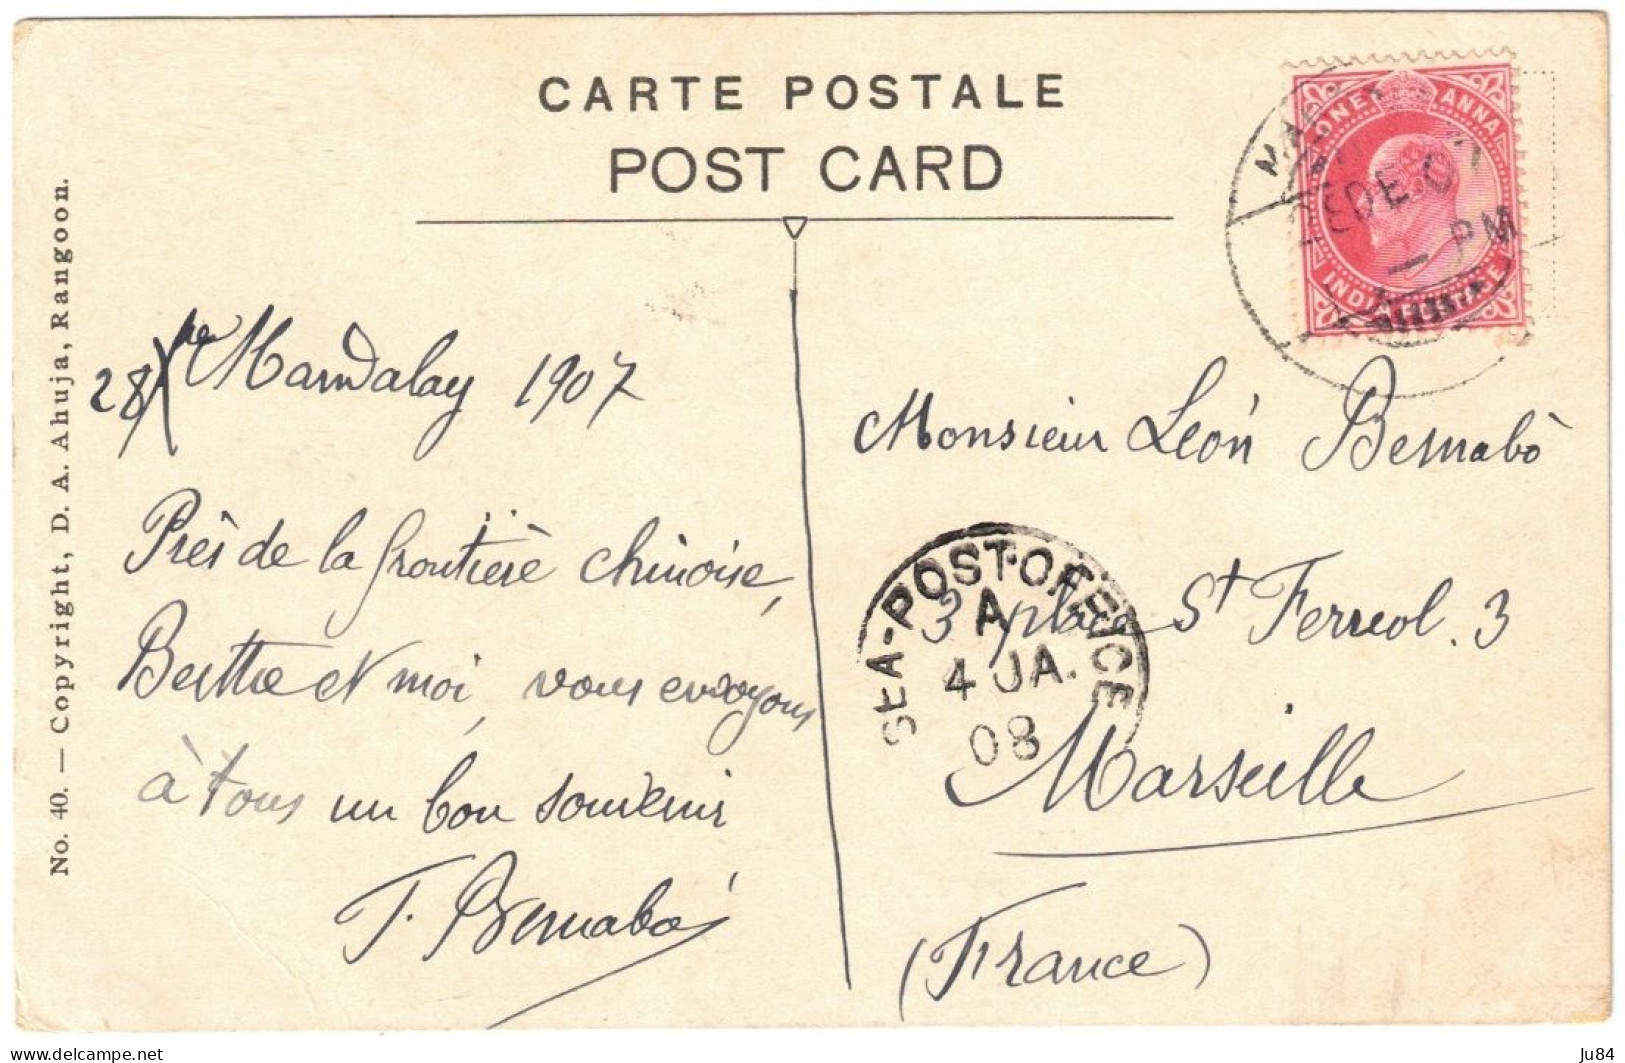 CARTE POSTALE
POST CARD
No. 40. — Copyright, D. A. Ahuja, Rangoon.
ONE ANNA
INDIA POSTAGE
DE 07
PM
28 Xbre Mandalay 1907
Près de la frontière chinoise,
Berthe et moi, vous envoyons
à tous un bon souvenir
J. Bernabò
Monsieur Léon Bernabò
3 place St Ferreol. 3
Marseille
(France)
SEA-POST-OFFICE
A
4 JA.
08
delcampe.net
Ju84